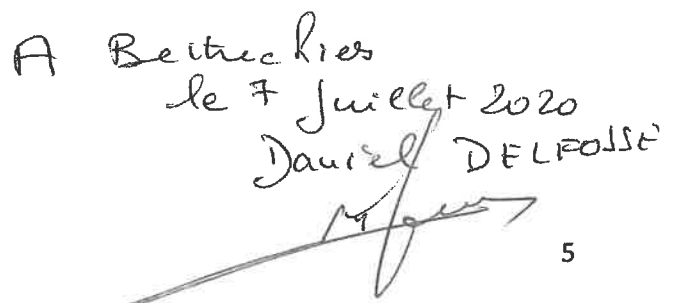 A Bettrechies
le 7 Juillet 2020
Daniel DELFOSSE
5